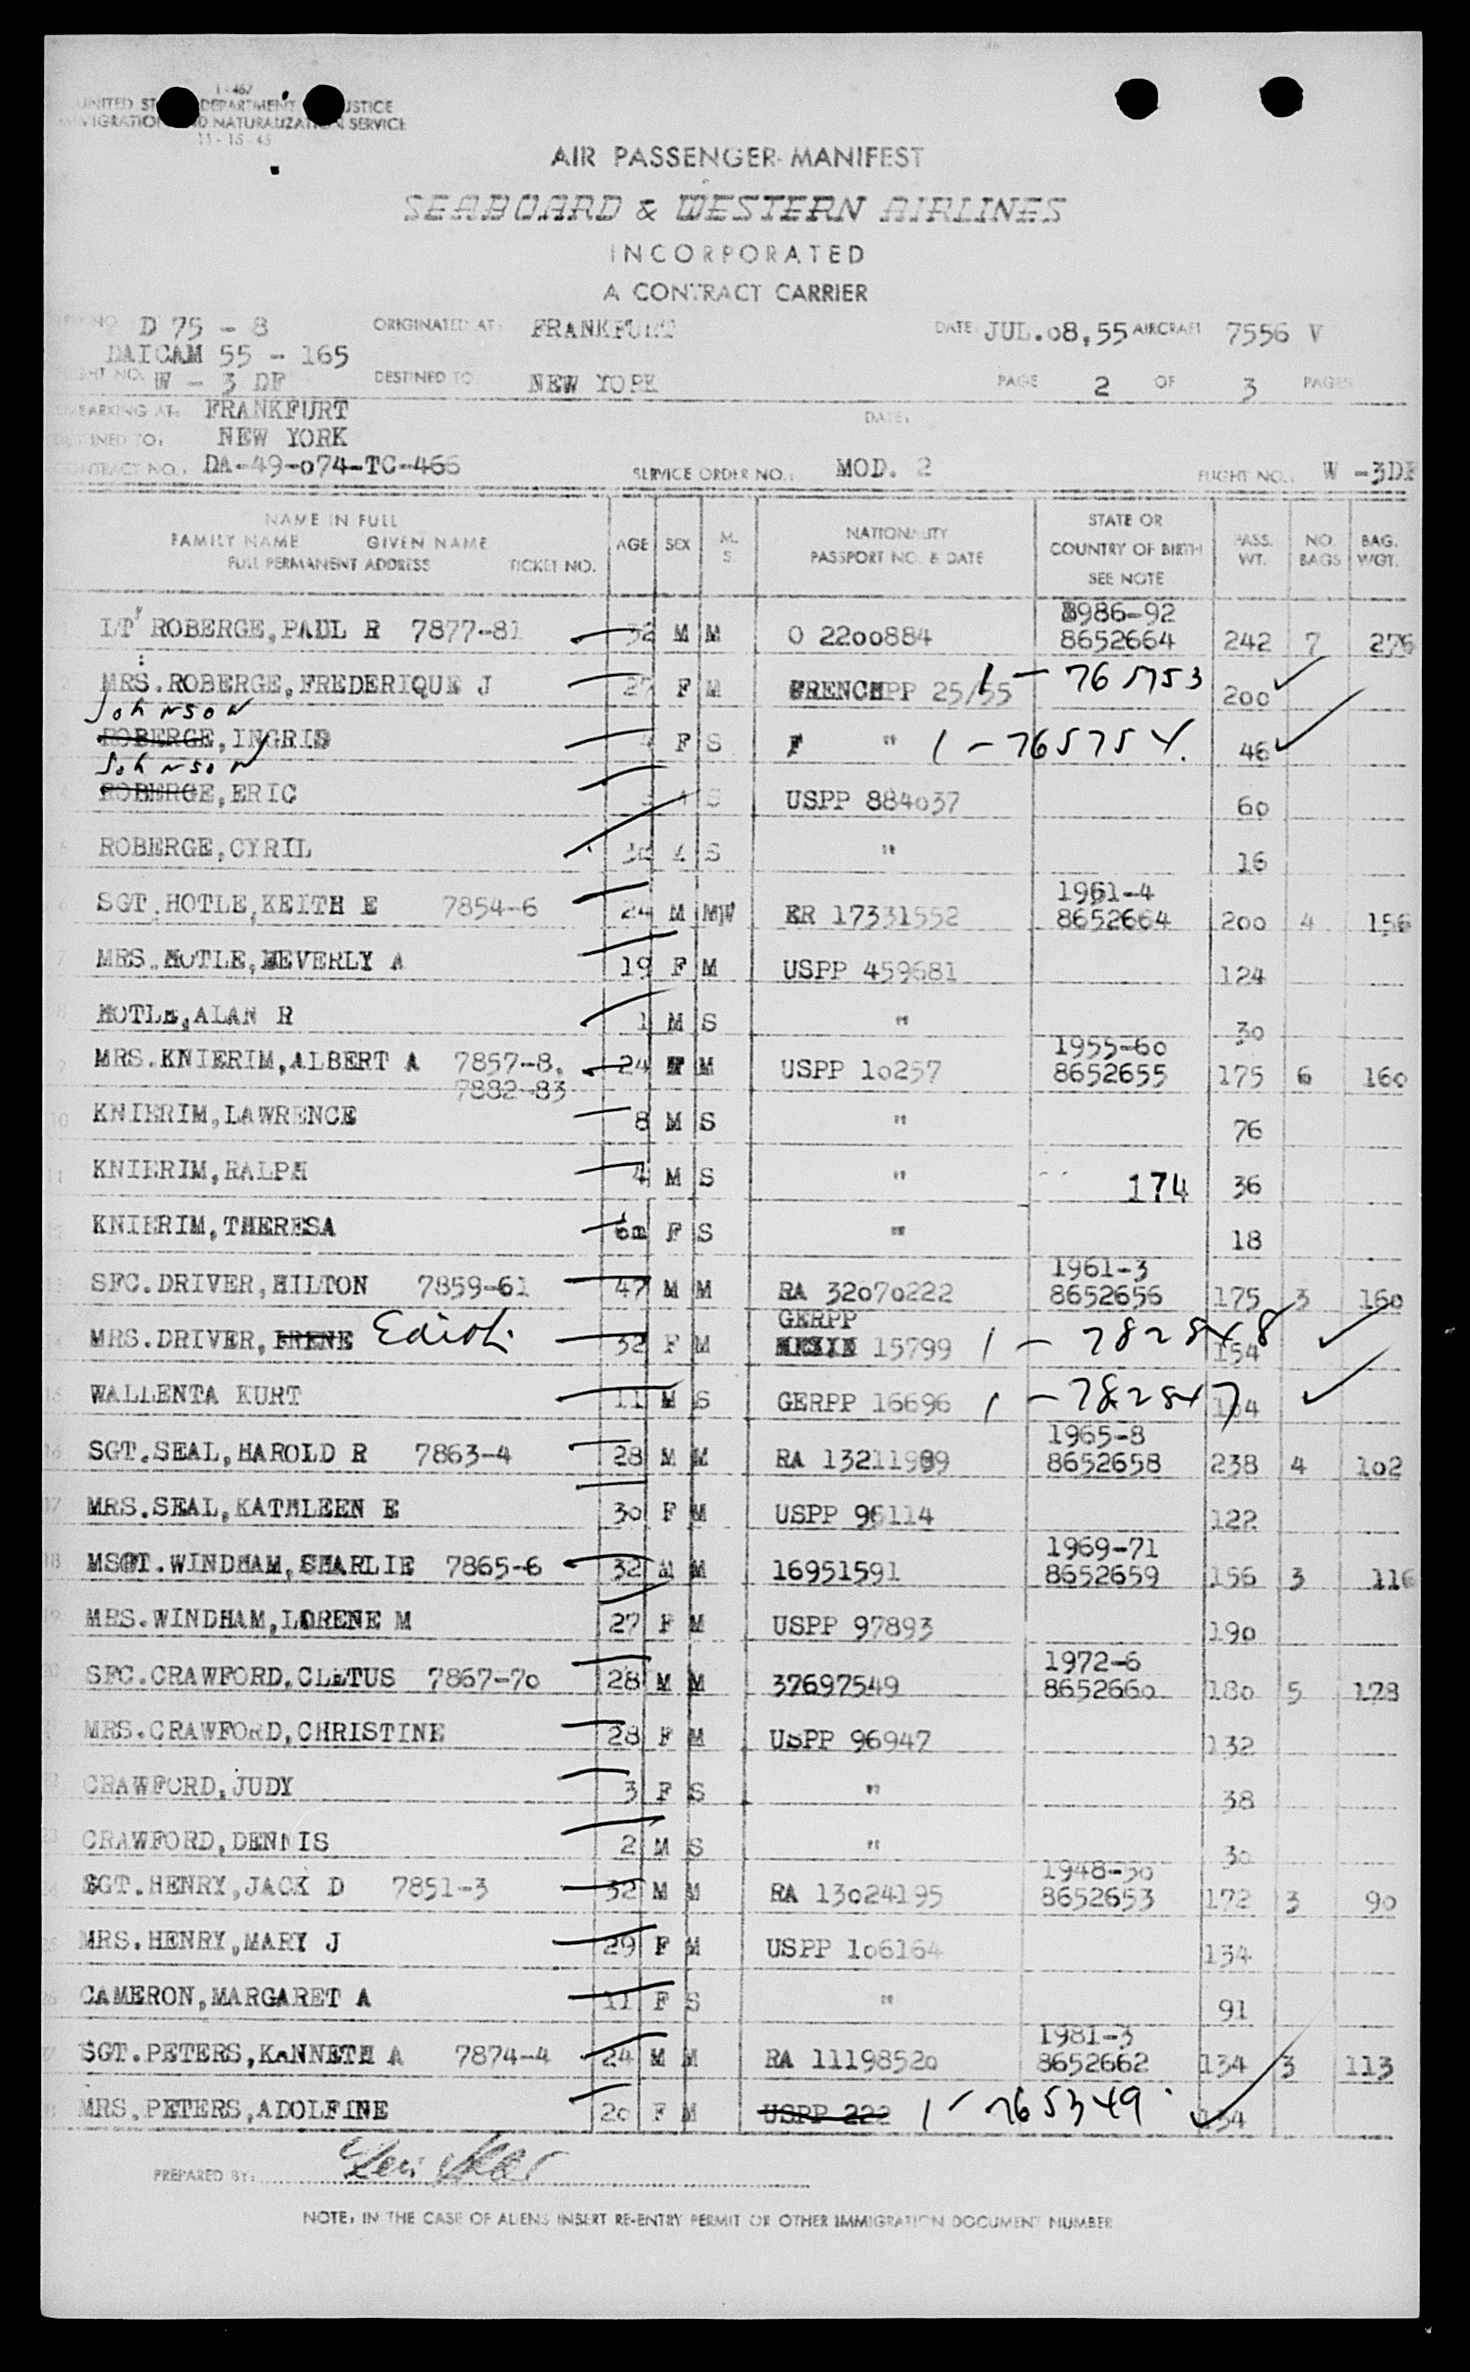 I-467
UNITED ST DEPARTMENT JUSTICE
IMMIGRATION ND NATURALIZATION SERVICE
11-15-45
AIR PASSENGER MANIFEST
SEABOARD & WESTERN AIRLINES
INCORPORATED
A CONTRACT CARRIER
D 75 - 8 ORIGINATED AT: FRANKFURT DATE: JUL.08,55 AIRCRAFT 7556 V
DAICAM 55 - 165
FLIGHT NO. W - 3 DF DESTINED TO: NEW YORK PAGE 2 OF 3 PAGES
EMBARKING AT: FRANKFURT DATE:
DESTINED TO: NEW YORK
CONTRACT NO.: DA-49-074-TC-466 SERVICE ORDER NO.: MOD. 2 FLIGHT NO.: W -3DF
NAME IN FULL
FAMILY NAME GIVEN NAME
FULL PERMANENT ADDRESS TICKET NO. AGE SEX M. S. NATIONALITY PASSPORT NO. & DATE STATE OR COUNTRY OF BIRTH SEE NOTE PASS. WT. NO. BAGS BAG. WGT.
1986-92
LT ROBERGE,PAUL R 7877-81 32 M M O 2200884 8652664 242 7 276
2 MRS.ROBERGE,FREDERIQUE J 27 F M FRENCHPP 25/55 1-765753 200
Johnson
3 ROBERGE,INGRID 4 F S F " 1-765754. 46
Johnson
4 ROBERGE,ERIC 3 S USPP 884037 60
5 ROBERGE,CYRIL S " 16
1961-4
6 SGT.HOTLE,KEITH E 7854-6 24 M MW ER 17331552 8652664 200 4 156
7 MRS.HOTLE,BEVERLY A 19 F M USPP 459681 124
8 HOTLE,ALAN R 1 M S " 30
1955-60
9 MRS.KNIERIM,ALBERT A 7857-8. 24 F M USPP 10257 8652655 175 6 160
7882-83
10 KNIERIM,LAWRENCE 8 M S " 76
11 KNIERIM,RALPH 4 M S " 174 36
12 KNIERIM,THERESA 6m F S " 18
1961-3
13 SFC.DRIVER,HILTON 7859-61 47 M M RA 32070222 8652656 175 3 160
GERPP
14 MRS.DRIVER,IRENE Edith. 32 F M 15799 1-782848 154
15 WALLENTA KURT 11 M S GERPP 16696 1-782847 104
1965-8
16 SGT.SEAL,HAROLD R 7863-4 28 M M RA 13211989 8652658 238 4 102
17 MRS.SEAL,KATHLEEN E 30 F M USPP 96114 122
1969-71
18 MSGT.WINDHAM,CHARLIE 7865-6 32 M M 16951591 8652659 156 3 116
19 MRS.WINDHAM,LORENE M 27 F M USPP 97893 190
1972-6
20 SFC.CRAWFORD,CLETUS 7867-70 28 M M 37697549 8652660 180 5 178
MRS.CRAWFORD,CHRISTINE 28 F M USPP 96947 132
22 CRAWFORD,JUDY 3 F S " 38
23 CRAWFORD,DENNIS 2 M S " 30
1948-50
24 SGT.HENRY,JACK D 7851-3 32 M M RA 13024195 8652653 172 3 90
25 MRS.HENRY,MARY J 29 F M USPP 106164 134
26 CAMERON,MARGARET A 11 F S " 91
1981-3
27 SGT.PETERS,KANNETH A 7874-4 24 M M RA 11198520 8652662 134 3 113
MRS.PETERS,ADOLFINE 20 F M USPP 222 1-765349. 134
PREPARED BY:
NOTE: IN THE CASE OF ALIENS INSERT RE-ENTRY PERMIT OR OTHER IMMIGRATION DOCUMENT NUMBER